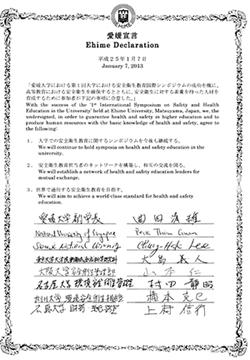 愛媛宣言
Ehime Declaration
平成25年1月7日
January 7, 2013
「愛媛大学における第1回大学における安全衛生教育国際シンポジウムの成功を機に、
高等教育における安全衛生を確保するとともに、安全衛生に対する素養を持った人材を
育成するために参加者が下記の事項に合意した。」
With the success of the "1st International Symposium on Safety and Health
Education in the University" held at Ehime University, Matsuyama, Japan, we, the
undersigned, in order to guarantee health and safety in higher education and to
produce human resources with the basic knowledge of health and safety, agree to
the following:
1. 大学での安全衛生教育に関するシンポジウムを今後も継続する。
We will continue to hold symposia on health and safety education in the
university.
2. 安全衛生教育担当者のネットワークを構築し、相互の交流を図る。
We will establish a network of health and safety education leaders for
mutual exchange.
3. 世界で通用する安全衛生教育を目指す。
We will aim to establish world-class health and safety education.
愛媛大学副学長
National University of Singapore
Seoul National University Chung-Hak Lee
大島義人
大阪大学安全衛生管理部 山本仁
名古屋大学環境安全衛生管理室 村田静昭
橋本克巳